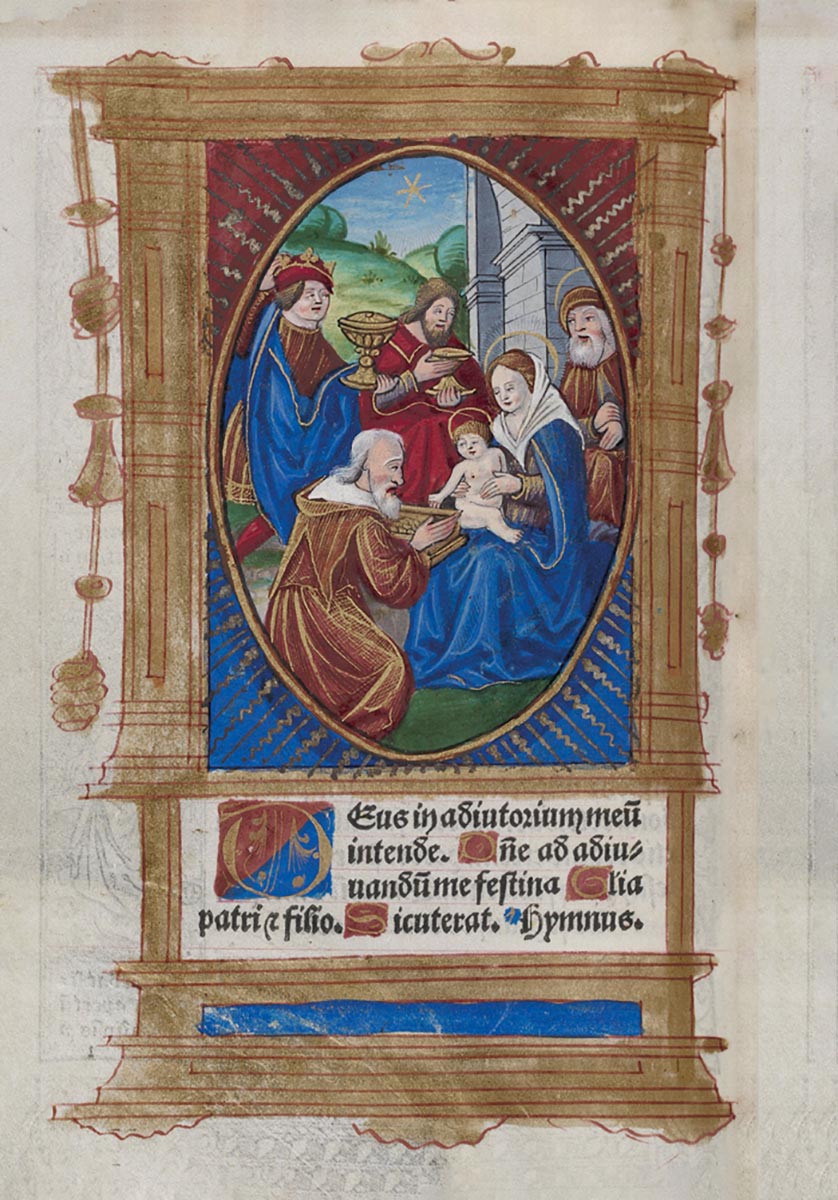 Deus in adiutorium meū
intende. Dñe ad adiu⸗
uandū me festina Glia
patri ⁊ filio. Sicut erat. Hymnus.